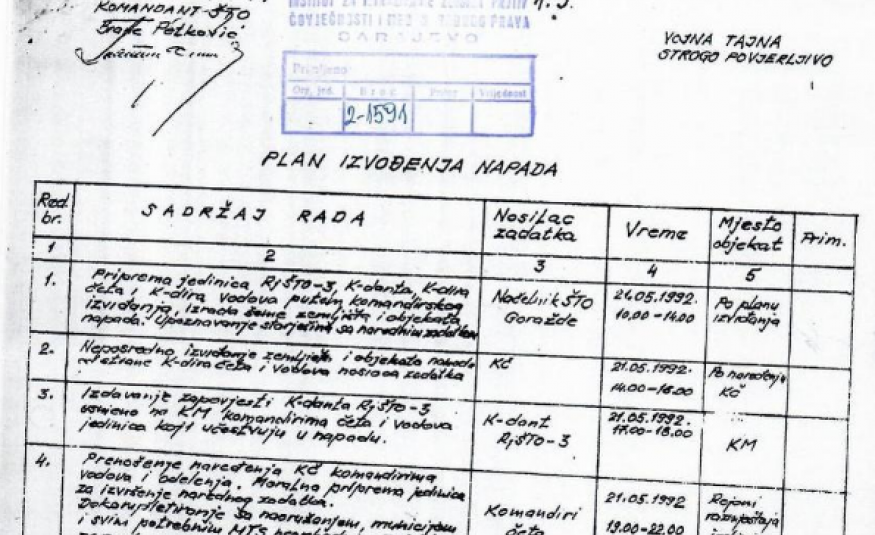 KOMANDANT ŠTO
ČOVJEČNOSTI I MEĐ PRAVA
SARAJEVO
VOJNA TAJNA
STROGO POVJERLJIVO
Primljeno
Org. jed. Broj Prilog Vrijednost
2-1591
PLAN IZVOĐENJA NAPADA
Red. br. SADRŽAJ RADA Nosilac zadatka Vreme Mjesto objekat Prim.
1 2 3 4 5
1. Priprema jedinica RjŠTO-3, K-danta, K-dira
četa i K-dira vodova putem komandirskog
izviđanja, izrada šeme zemljišta i objekata
napada. Upoznavanje starješina sa narednim zadatkom
Načelnik ŠTO
Goražde
21.05.1992.
10.00-14.00
Po planu
izviđanja
2. Neposredno izviđanje zemljišta i objekata napada
strane K-dira četa i vodova nosioca zadatka
KČ
21.05.1992.
14.00-16.00
Po naređenju
KČ
3. Izdavanje zapovjesti K-danta RjŠTO-3
usmeno na KM komandirima četa i vodova
jedinica koji učestvuju u napadu.
K-dant
RjŠTO-3
21.05.1992.
17.00-18.00
KM
4. Prenošenje naređenja KČ komandirima
vodova i odelenja. Moralna priprema jedinice
za izvršenje narednog zadatka.
Dokompletiranje sa naoružanjem, municijom
i svim potrebnim MTS
Komandiri
četa
21.05.1992
19.00-22.00
Rejoni
razmještaja